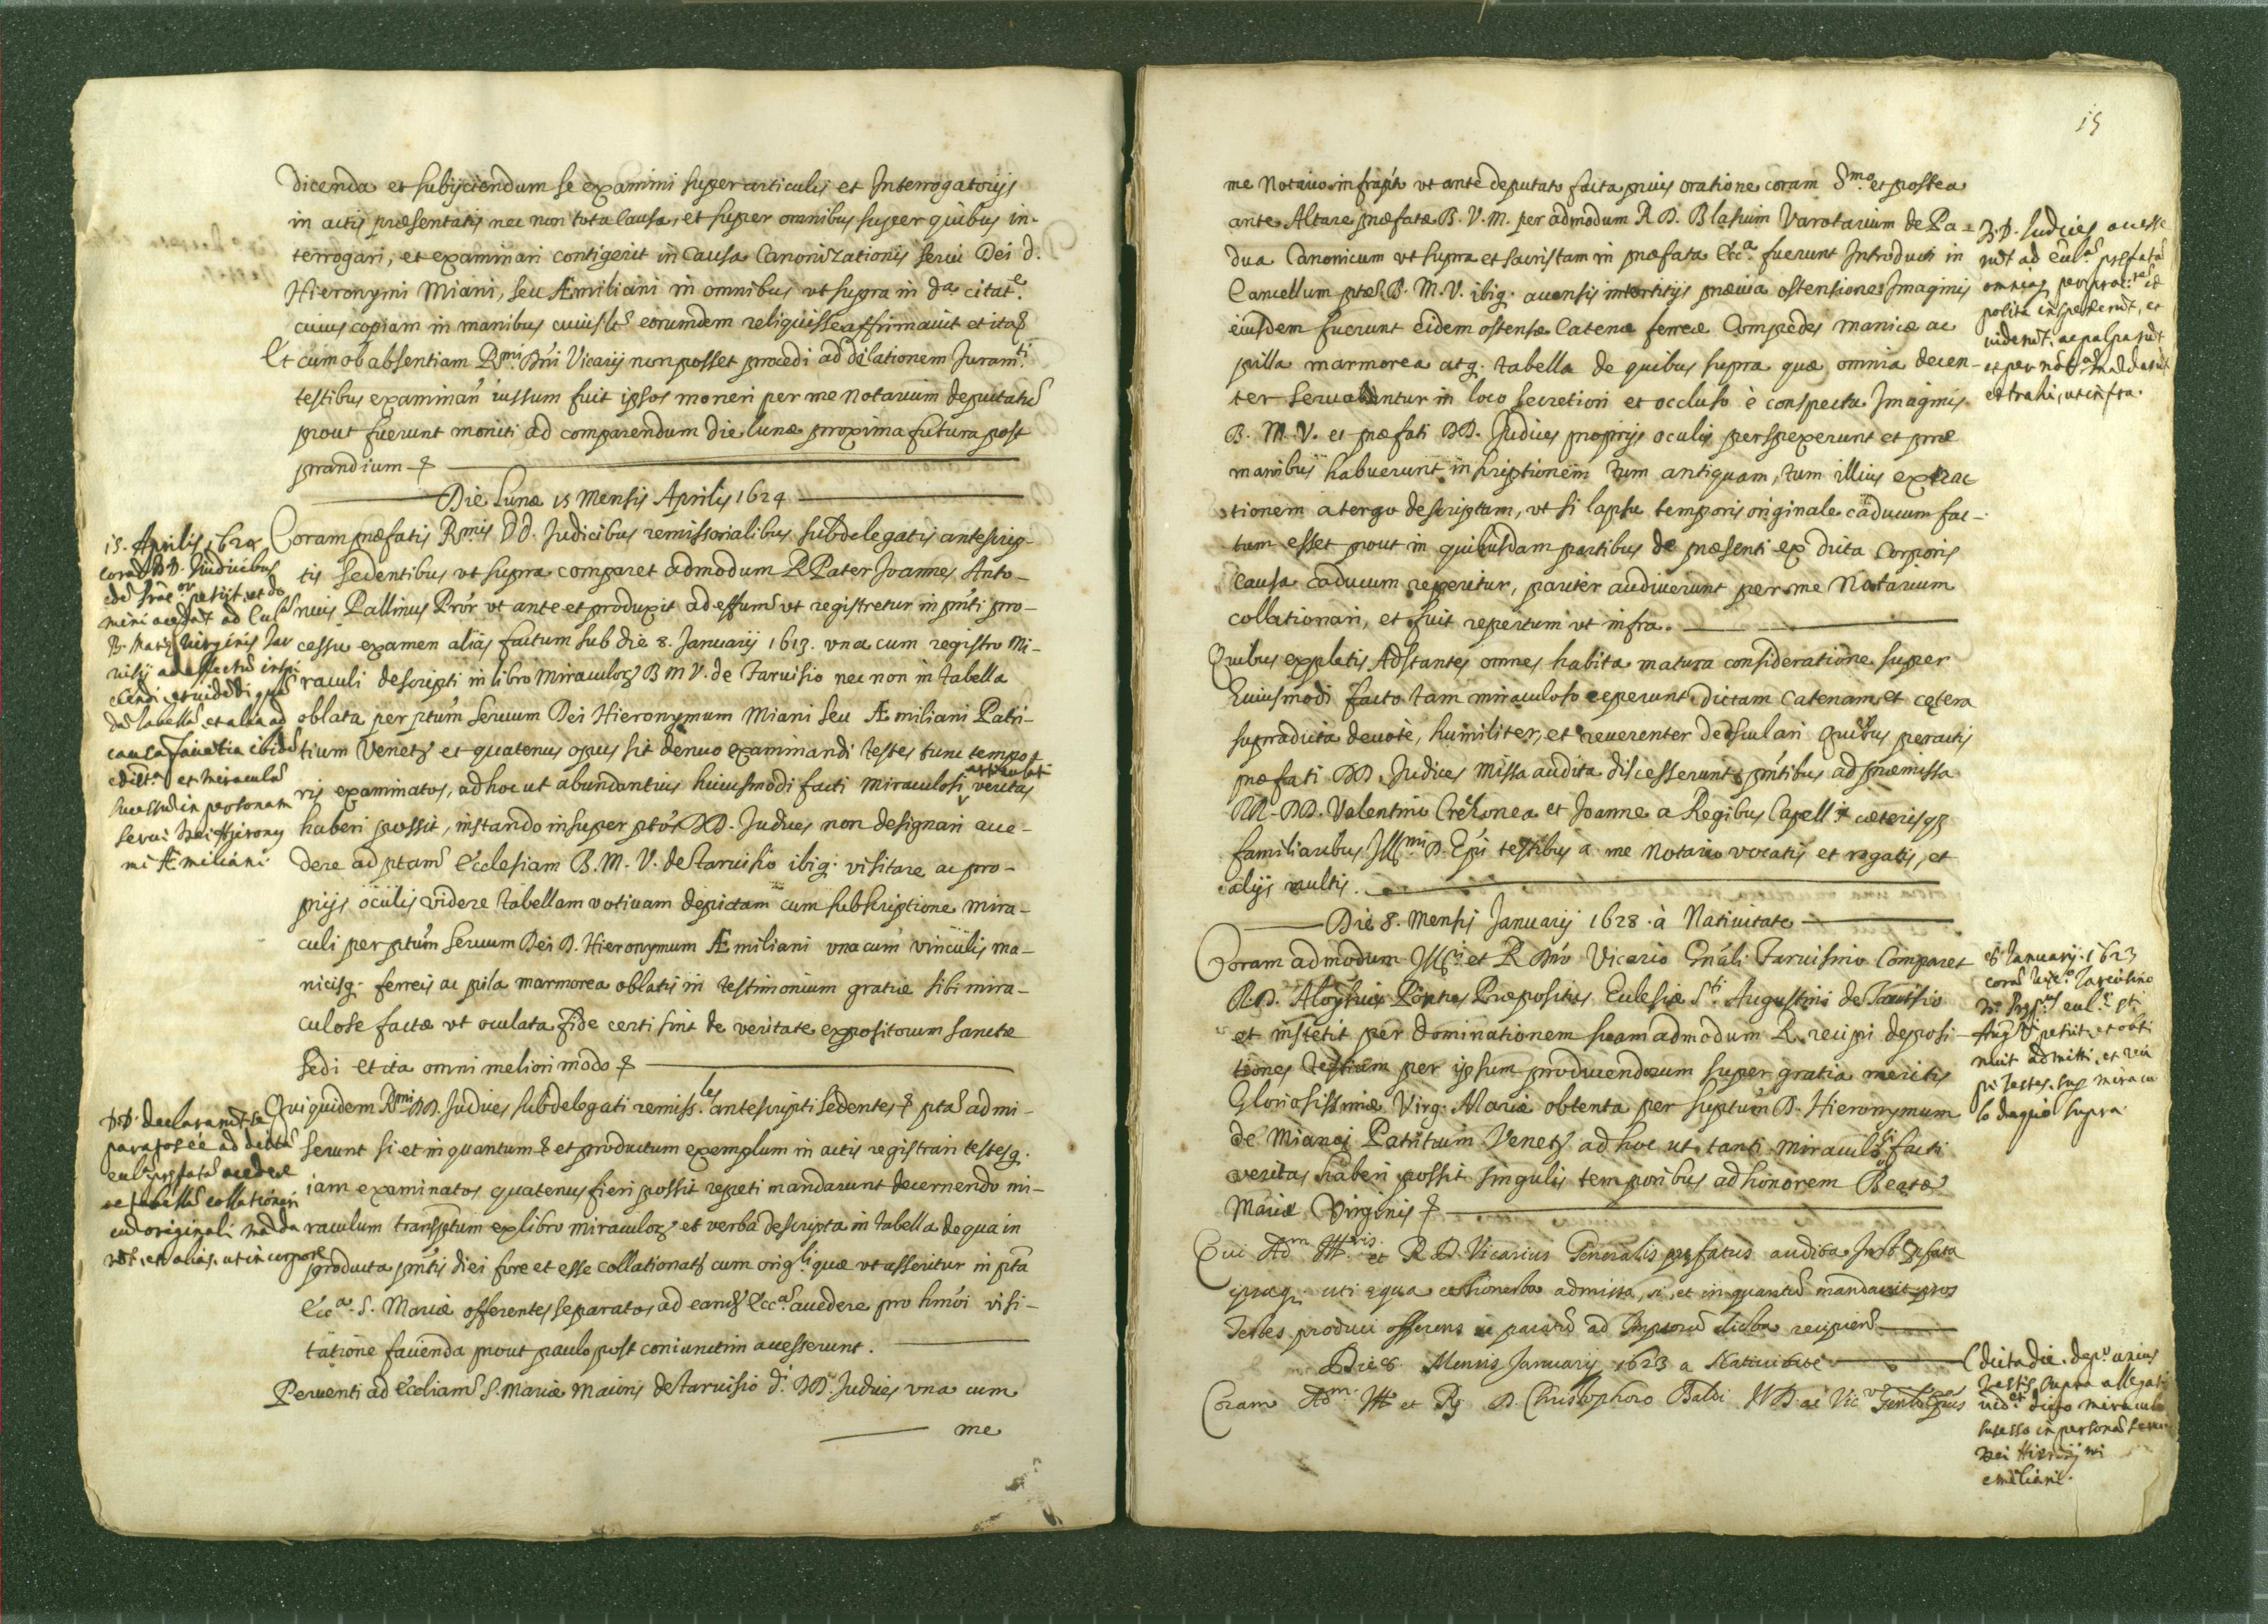 dicenda et subijciendum se examini super articulis et Interrogatorijs
in actis præsentatis nec non tota Causa, et super omnibus super quibus in-
terrogari, et examinari contigerit in Causa Canonizationis serui Dei D.
Hieronymi Miani, seu Æmiliani in omnibus vt supra in da. citate.
cuius copiam in manibus eorumdem reliquisse affirmauit et ita
Et cum ob absentiam Rmi. Dni Vicarij non posset procedi ad delationem Juramti.
testibus examinan iussum fuit ipsos moneri per me Notarium deputatu
prout fuerunt moniti ad comparendum die lunæ proxima futura post
prandium
Die Lunæ 15 Mensis Aprilis 1624
Coram præfatis Rmis DD. Judicibus remissorialibus subdelegatis antescrip-
tis sedentibus vt supra comparet admodum R Pater Joannes Anto-
nius Pallinus Pror vt ante et produxit ad effum vt registretur in pnti pro-
cessu examen aliàs factum sub die 8. Januarij 1613. vna cum registro Mi-
raculi descripti in libro Miraculor B M V. de Taruisio nec non in tabella
oblata per ptum seruum Dei Hieronymum Miani seu Æmiliani Patri-
tium Venets et quatenus opus sit denuo examinandi testes tunc tempo-
ris examinatos, ad hoc ut abundantius huiusmodi facti miraculosi articulati veritas
haberi possit, instando insuper ptos DD. Judices non designari acce-
dere ad ptam Ecclesiam B. M. V. de Taruisio ibiq. visitare ac pro-
prijs oculis videre tabellam votiuam depictam cum subscriptione mira-
culi per ptum seruum Dei D. Hieronymum Æmiliani vna cum vinculis ma-
nicisq. ferreis ac pila marmorea oblatis in testimonium gratiæ sibi mira-
culose factæ vt oculata fide certi sint de veritate expositorum sanctæ
sedi et ita omni meliori modo
Qui quidem Rmi DD. Judices subdelegati remiss.les antescripti sedentes pta admi-
serunt si et in quantum et productum exemplum in actis registrari testesq.
iam examinatos quatenus fieri possit repeti mandarunt decernendo mi-
raculum transsptum ex libro miraculor et verba descripta in tabella de qua in
producta pntis diei fore et esse collationats cum origli quæ vt asseritur in pta
Ecca. S. Mariæ offerentes se paratos ad eand Ecca accedere pro hmoi visi-
tatione facienda prout paulo post coniunctim accesserunt.
Peruenti ad Eccliam S. Mariæ Maioris de Taruisio d. DD. Judices vna cum
me
15. Aprilis 1624
cora DD. Judicibus
B. Mariæ Virginis
serui Dei Hierony
mi Æmiliani
DD. declararut se
paratos ee ad dicta
cu originali mada
rut, et alias, ut in corpore
15
me Notario infrapto vt ante deputato facta prius oratione coram Smo. et postea
ante Altare præfatæ B. V. M. per admodum R D. Blasium Varotarium de Pa-
dua Canonicum vt supra et sacristam in præfata Ecca. fuerunt Introducti in
Cancellum ptæ B. M. V. ibiq. accensis intortitijs præuia ostensione Imaginis
eiusdem fuerunt eidem ostensæ Catenæ ferreæ Compedes manicæ ac
pilla marmorea atq. tabella de quibus supra quæ omnia decen-
ter seruabantur in loco secretiori et occluso è conspectu Imaginis
B. M. V. et præfati DD. Judices proprijs oculis perspexerunt et præ
manibus habuerunt inscriptionem tum antiquam, tum illius extrac
tionem a tergo descriptam, vt si lapsu temporis originale caducum fac-
tum esset prout in quibusdam partibus de præsenti ex dicta Corporis
causa caducum reperitur, pariter audiuerunt per me Notarium
collationari, et fuit repertum vt infra.
Quibus expletis Adstantes omnes habita matura consideratione super
huiusmodi facto tam miraculoso ceperunt dictam Catenam et cętera
supradicta deuotè, humiliter, et reuerenter deosculari Quibus peractis
præfati DD. Judices Missa audita discesserunt pntibus ad præmissa
RR. DD. Valentino et Joanne a Regibus Capell cæterisq
familiaribus Illmi D. Epi testibus a me Notario vocatis et rogatis, et
alijs multis.
Die 8. Mensis Januarij 1628. à Natiuitate
Coram admodum Illri. et R Dno Vicario Gnali Taruisino Comparet
R.D. Aloysius Præpositus Ecclesiæ Sti. Augustini de Taruisio
et institit per Dominationem suam admodum R. recipi deposi-
tiones testium per ipsum producendorum super gratia meritis
Gloriosissimæ Virg. Mariæ obtenta per suptum D. Hieronymum
de Mianis Patritium Venets ad hoc ut tanti miraculosi facti
veritas haberi possit singulis temporibus ad honorem Beatæ
Mariæ Virginis
Qui Adm Illris. et R D. Vicarius Generalis præfatus audita
admissa, si, et in quantu mandauit
Testes produci offerens se paratu ad
Die 8. Mensis Januarij 1623 a Natiuitate
Coram Adm. Ill et R D. Christophoro Baldi
DD. Judices accesse
rut ad
uiderut. ac palparut
extrahi, ut infra.
8 Januarij. 1623
petiit, et obti
nuit admitti, et reci
pi testes. sup miracu
lo de quo supra.
dicta die.
testis supra allegati
dicto miraculo
successo in persona serui
Dei Hieronymi
emiliani.